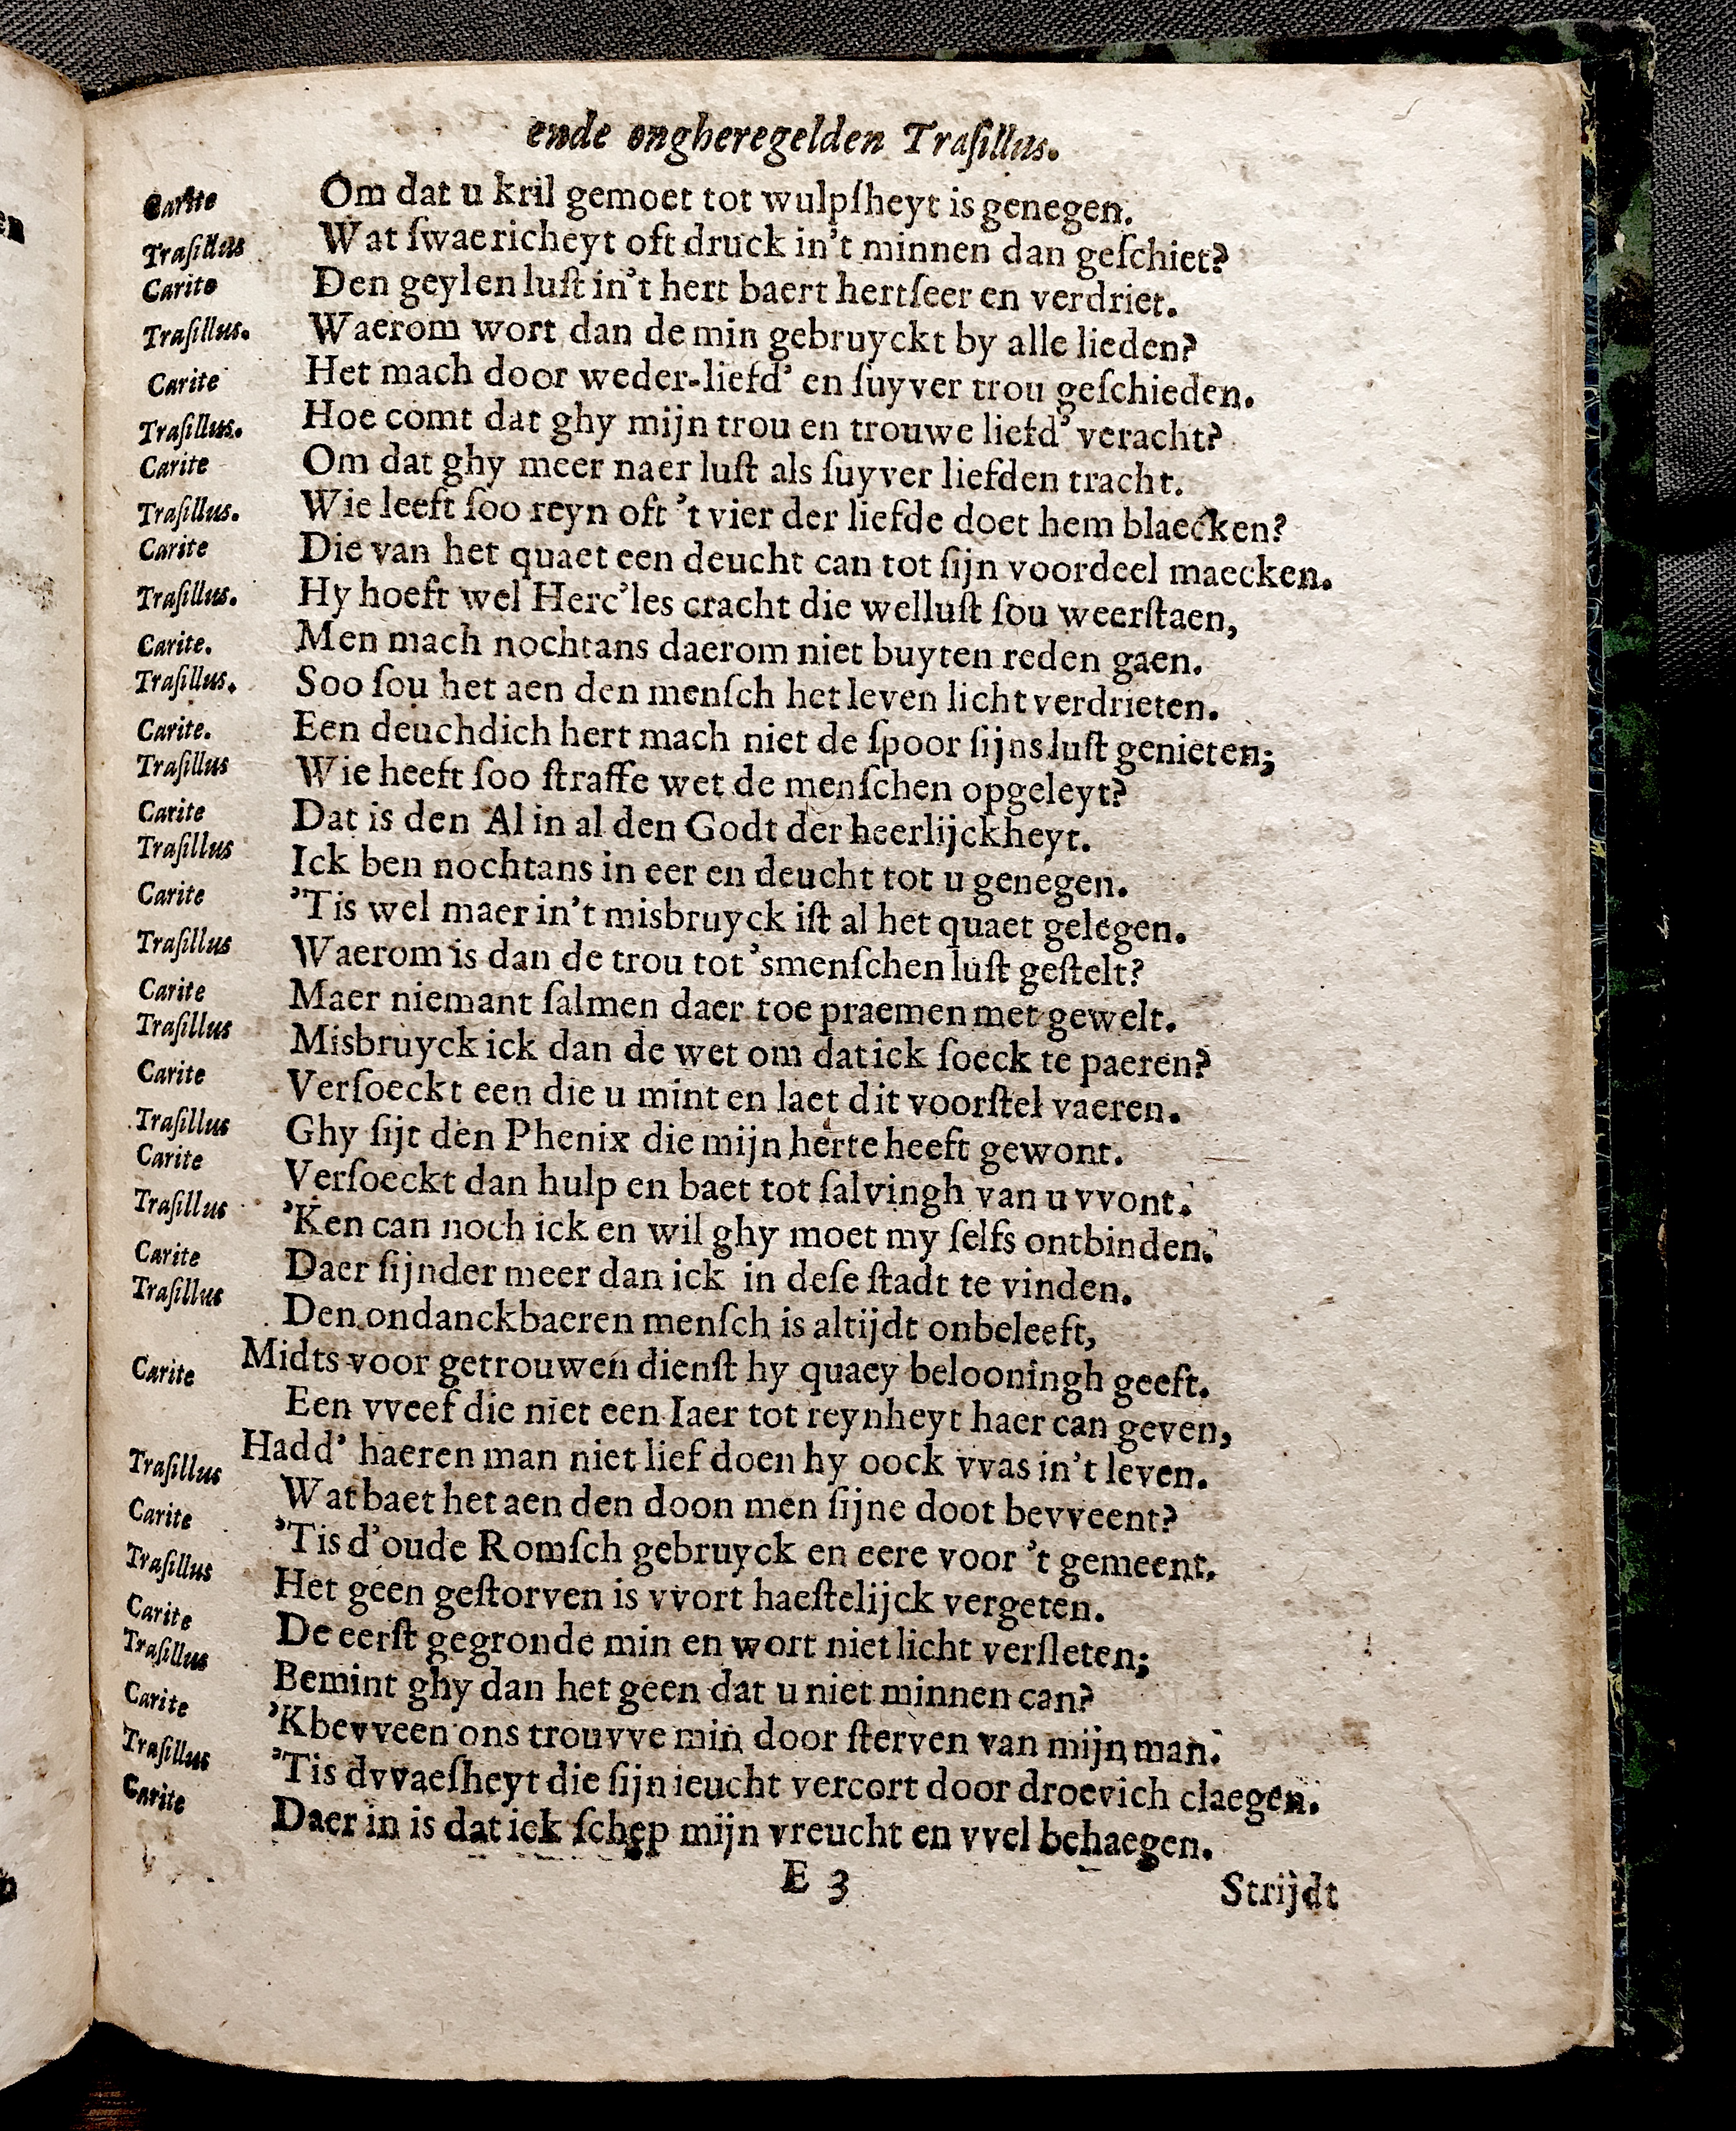 ende ongheregelden Traſillus.
Carite Om dat u kril gemoet tot wulpſheyt is genegen.
Traſillus Wat ſwaericheyt oft druck in't minnen dan geſchiet?
Carite Den geylen luſt in't hert baert hertſeer en verdriet.
Traſillus. Waerom wort dan de min gebruyckt by alle lieden?
Carite Het mach door weder-liefd' en ſuyver trou geſchieden.
Traſillus. Hoe comt dat ghy mijn trou en trouwe liefd' veracht?
Carite Om dat ghy meer naer luſt als ſuyver liefden tracht.
Traſillus. Wie leeft ſoo reyn oft 't vier der liefde doet hem blaecken?
Carite Die van het quaet een deucht can tot ſijn voordeel maecken.
Traſillus. Hy hoeft wel Herc'les cracht die welluſt ſou weerſtaen,
Carite. Men mach nochtans daerom niet buyten reden gaen.
Traſillus. Soo ſou het aen den menſch het leven licht verdrieten.
Carite. Een deuchdich hert mach niet de ſpoor ſijns luſt genieten;
Traſillus Wie heeft ſoo ſtraffe wet de menſchen opgeleyt?
Carite Dat is den Al in al den Godt der heerlijckheyt.
Traſillus Ick ben nochtans in eer en deucht tot u genegen.
Carite 'Tis wel maer in't misbruyck iſt al het quaet gelegen.
Traſillus Waerom is dan de trou tot 'smenſchen luſt geſtelt?
Carite Maer niemant ſalmen daer toe praemen met gewelt.
Traſillus Misbruyck ick dan de wet om dat ick ſoeck te paeren?
Carite Verſoeckt een die u mint en laet dit voorſtel vaeren.
Traſillus Ghy ſijt den Phenix die mijn herte heeft gewont.
Carite Verſoeckt dan hulp en baet tot ſalvingh van u vvont.
Traſillus 'Ken can noch ick en wil ghy moet my ſelfs ontbinden.
Carite Daer ſijnder meer dan ick in deſe ſtadt te vinden.
Traſillus Den ondanckbaeren menſch is altijdt onbeleeft,
Midts voor getrouwen dienſt hy quaey belooningh geeft.
Carite Een vveef die niet een Iaer tot reynheyt haer can geven,
Hadd' haeren man niet lief doen hy oock vvas in't leven.
Traſillus Wat baet het aen den doon men ſijne doot bevveent?
Carite 'Tis d'oude Romſch gebruyck en eere voor 't gemeent.
Traſillus Het geen geſtorven is vvort haeſtelijck vergeten.
Carite De eerſt gegronde min en wort niet licht verſleten;
Traſillus Bemint ghy dan het geen dat u niet minnen can?
Carite 'Kbevveen ons trouvve min door ſterven van mijn man.
Traſillus 'Tis dvvaeſheyt die ſijn ieucht vercort door droevich claegen.
Carite Daer in is dat ick ſchep mijn vreucht en vvel behaegen.
E 3 Strijdt